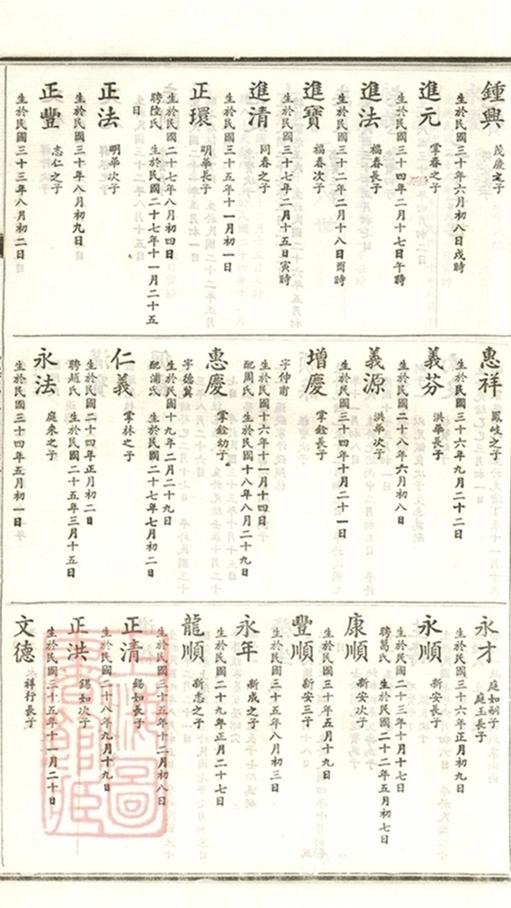 鍾興 茂慶之子
生於民國三十年六月初八日戌時
進元 掌春之子
生於民國三十四年二月十七日午時
進法 福春長子
生於民國三十二年二月十八日酉時
進寶 福春次子
生於民國三十七年二月十五日寅時
進清 同春之子
生於民國三十五年十一月初一日
正環 明華長子
生於民國二十七年八月初四日
聘陸氏 生於民國二十七年十一月二十五
日
正法 明華次子
生於民國三十年八月初九日
正豐 志仁之子
生於民國三十三年八月初二日
惠祥 鳳岐之子
生於民國三十六年九月二十二日
義芬 洪華長子
生於民國二十八年六月初八日
義源 洪華次子
生於民國三十四年十月二十一日
增慶 掌銓長子
字仲甫
生於民國十六年十一月十四日
配周氏 生於民國十八年八月二十九日
惠慶 掌銓幼子
字德冀
生於民國十九年二月二十九日
配浦氏 生於民國二十七年七月初二日
仁義 掌林之子
生於民國二十四年正月初二日
聘趙氏 生於民國二十五年三月十五日
永法 庭來之子
生於民國三十四年五月初一日
永才 庭如嗣子
庭玉長子
生於民國三十六年正月初九日
永順 新安長子
生於民國二十三年十月十七日
聘葛氏 生於民國二十二年五月初七日
康順 新安次子
生於民國三十年五月十九日
豐順 新安三子
生於民國三十五年八月初三日
永年 新成之子
生於民國二十九年正月二十七日
龍順 新志之子
生於民國三十五年十二月初八日
正清 錫如長子
生於民國二十八年九月十九日
正洪 錫如次子
生於民國三十年十月十九日
文德 祥行長子
生於民國三十五年十一月二十日